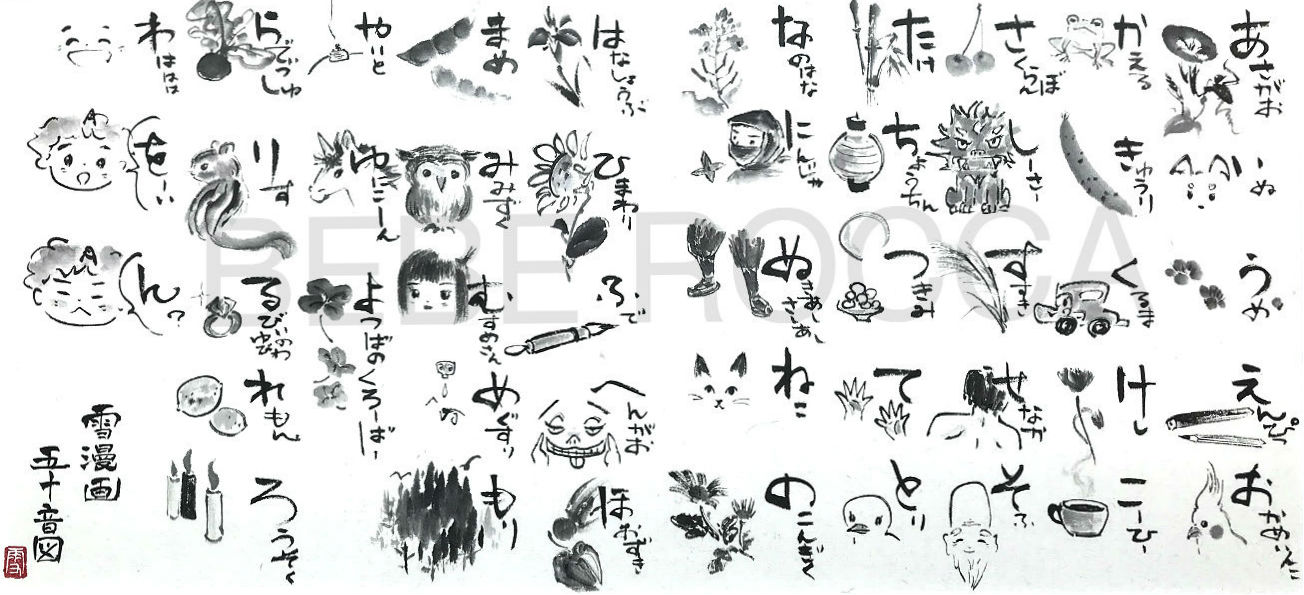 あさがお
いぬ
うめ
えんぴつ
おかめいんこ
かえる
きゅうり
くるま
けし
こーひー
さくらんぼ
しーさー
すすき
せなか
そふ
たけ
ちょうちん
つきみ
て
とり
なのはな
にんじゃ
ぬきあしさしあし
ねこ
のこんぎく
はなしょうぶ
ひまわり
ふで
へんがお
ほおずき
まめ
みみずく
むすめさん
めぐすり
もり
やいと
ゆにこーん
よつばのくろーばー
らでぃっしゅ
りす
るびいのゆびわ
れもん
ろうそく
わははは
を〜い
ん?
雪漫画
五十音図
雪
BEBE ROCCA